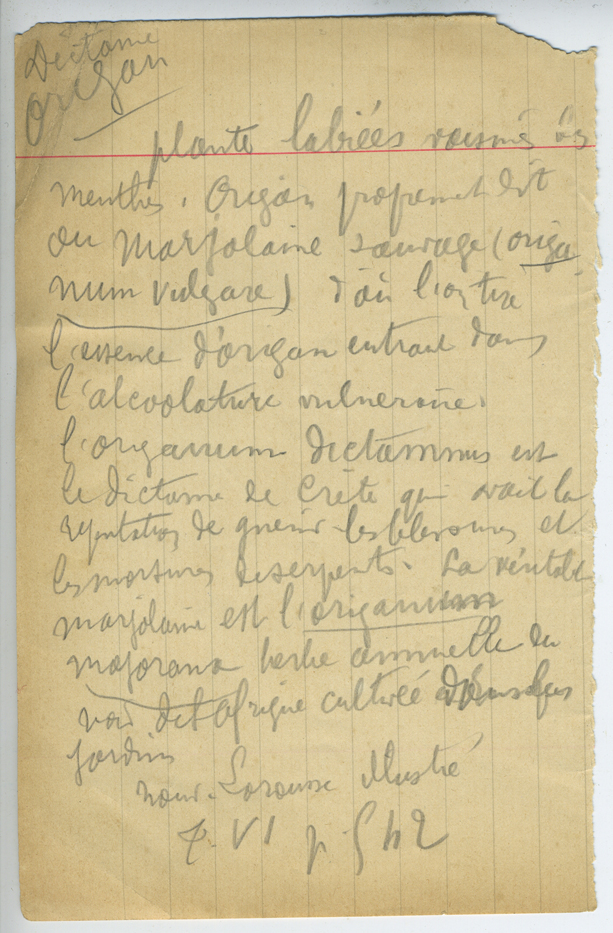 Dictame
Origan
plante labiées voisines des
menthes. Origan proprement dit
ou Marjolaine sauvage (origa
num vulgare) d'où l'on tire
l'essence d'origan entrant dans
l'alcoolature vulneraire.
l'origanum dictamnus est
le dictame de Crète qui avait la
réputation de guérir les blessures et
les morsures de serpents. La véritable
marjolaine est l'origanum
majorana herbe annuelle du
nord de l'Afrique cultivée dans les
jardins
nouv. Larousse Illustré
t. VI p. 542